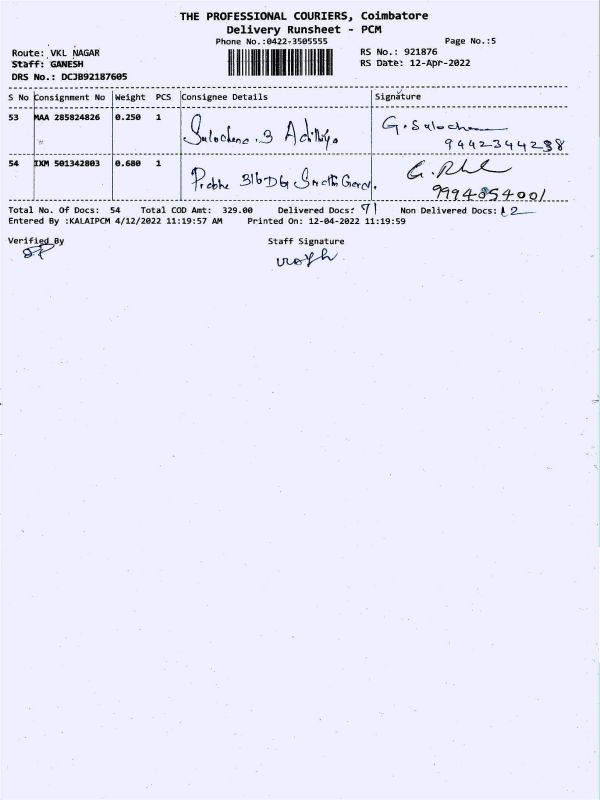 THE PROFESSIONAL COURIERS, Coimbatore
Delivery Runsheet - PCM
Phone No.:0422-3505555 Page No.:5
Route: VKL NAGAR RS No.: 921876
Staff: GANESH RS Date: 12-Apr-2022
DRS No.: DCJB92187605
S No Consignment No Weight PCS Consignee Details Signature
53 MAA 285824826 0.250 1
Sulochana .3 G.Sulochana
9442344238
54 IXM 501342803 0.680 1
316
9994854001
Total No. Of Docs: 54 Total COD Amt: 329.00 Delivered Docs: Non Delivered Docs:
Entered By :KALAIPCM 4/12/2022 11:19:57 AM Printed On: 12-04-2022 11:19:59
Verified By Staff Signature